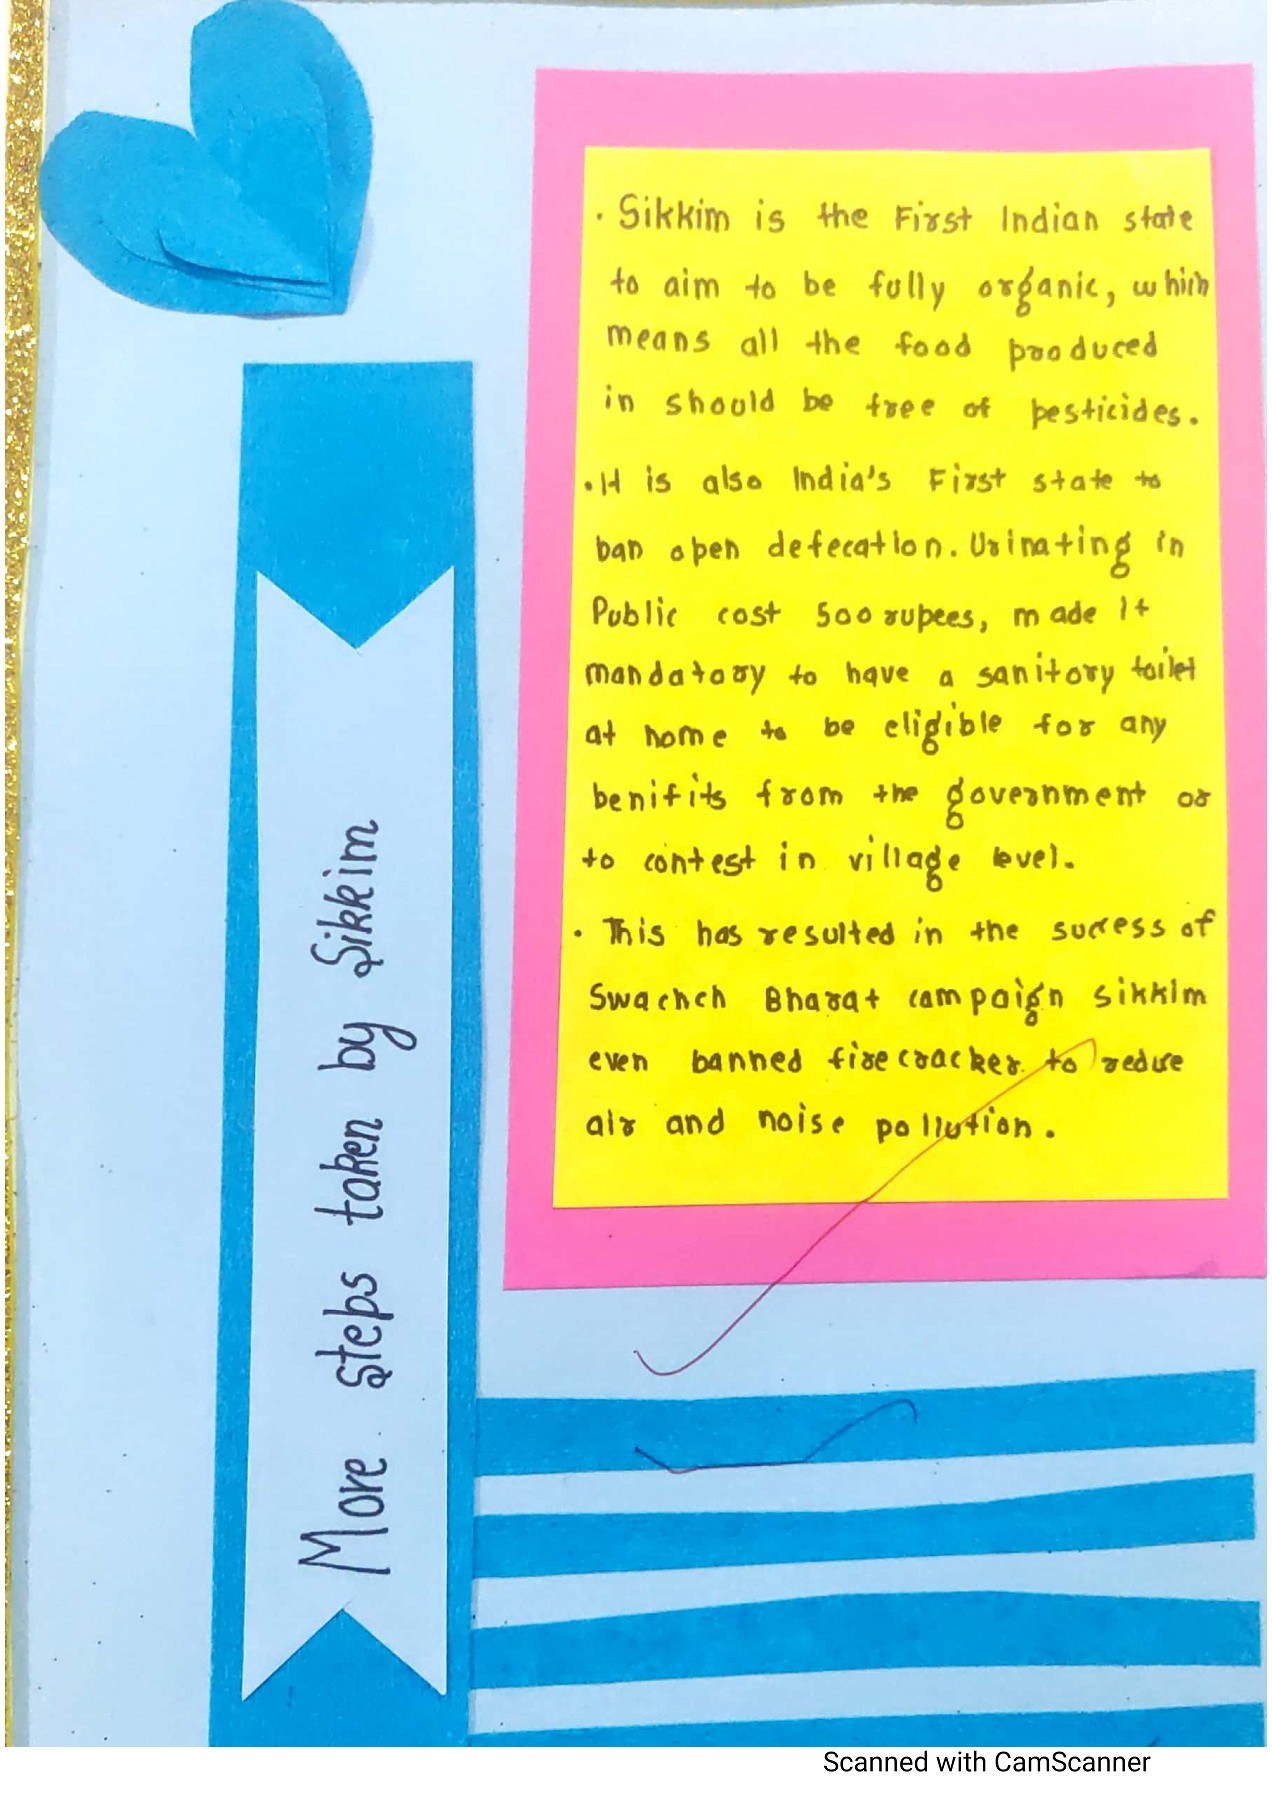 More steps taken by Sikkim
• Sikkim is the First Indian state
to aim to be fully organic, which
means all the food produced
in should be free of pesticides.
• It is also India's First state to
ban open defecation. Urinating in
Public cost 500 rupees, made it
mandatory to have a sanitory toilet
at home to be eligible for any
benifits from the government or
to contest in village level.
• This has resulted in the success of
Swachch Bharat campaign Sikkim
even banned firecracker to reduce
air and noise pollution.
Scanned with CamScanner